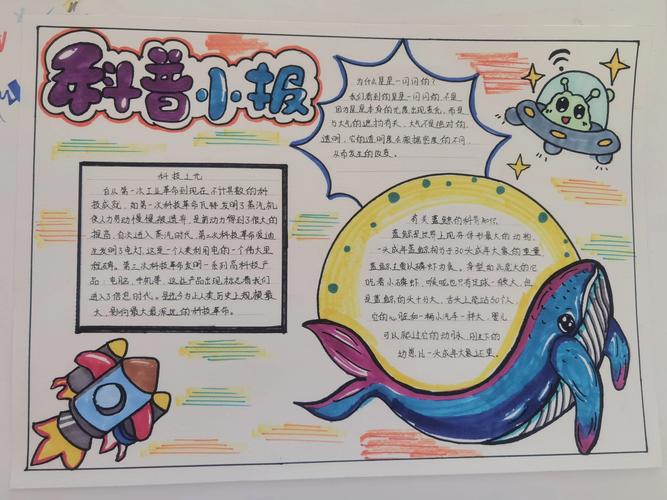 科普小报
为什么星星一闪一闪的？
我们看到的星星一闪一闪的，不是
因为星星本身的光度出现变化，而是
与大气的遮挡有关，大气不是绝对的
透明，它的透明度会根据密度的不同，
从而发生的改变。
科技之光
自从第一次工业革命到现在，不计其数的科
技成就，如第一次科技革命瓦特发明了蒸汽机
使人力劳动慢慢被遗弃，是劳动力得到了很大的
提高，自次进入蒸汽时代。第二次科技革命爱迪
生发明了电灯，这是一个人类利用电的一个伟大里
程碑。第三次科技革命发明一系列高科技产
品：电脑，手机等，这些产品出现，标志着我们
进入了信息时代。是迄今为止人类历史上规模最
大，影响最大最深远的科技革命。
有关蓝鲸的科普知识
蓝鲸是世界上现存体形最大的动物，
一头成年蓝鲸相当于30头成年大象的重量
蓝鲸主要以磷虾为食，身型如此庞大的它
吃着小磷虾，喉咙也只有足球一般大，但
是蓝鲸的头十分大，舌头上能站50个人，
它的心脏如一辆小汽车一样大，婴儿
可以爬过它的动脉，刚生下的
幼崽比一头成年大象还重。